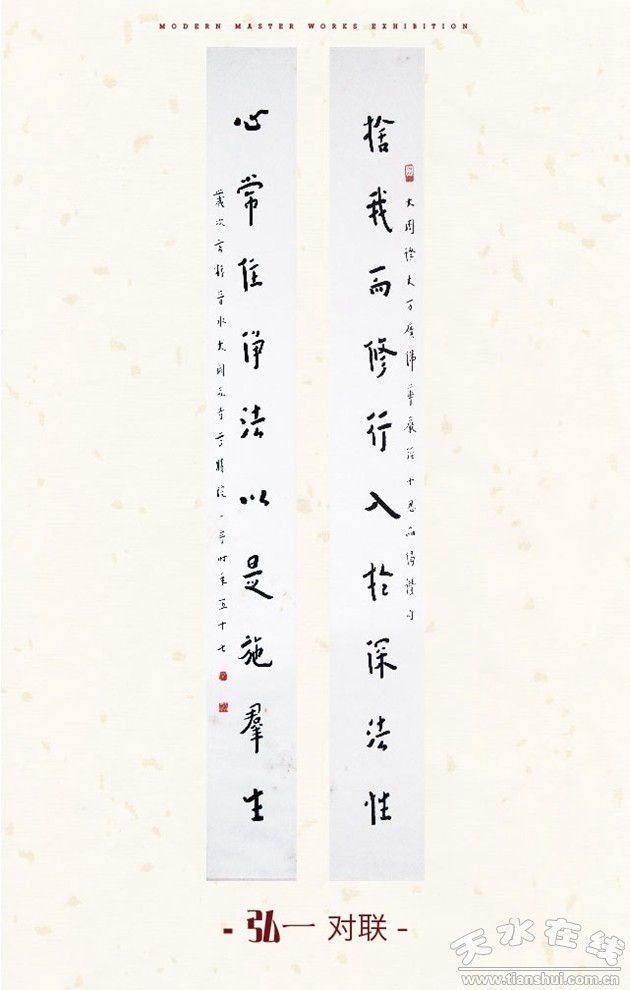 MODERN MASTER WORKS EXHIBITION
捨我而修行入於深法性
大周譯大方廣佛華嚴經十忍品偈讚句
心常住淨法以是施羣生
歲次玄枵晉水大開元寺尊勝院一音時年五十七
- 弘一 对联 -
天水在线
www.tianshui.com.cn